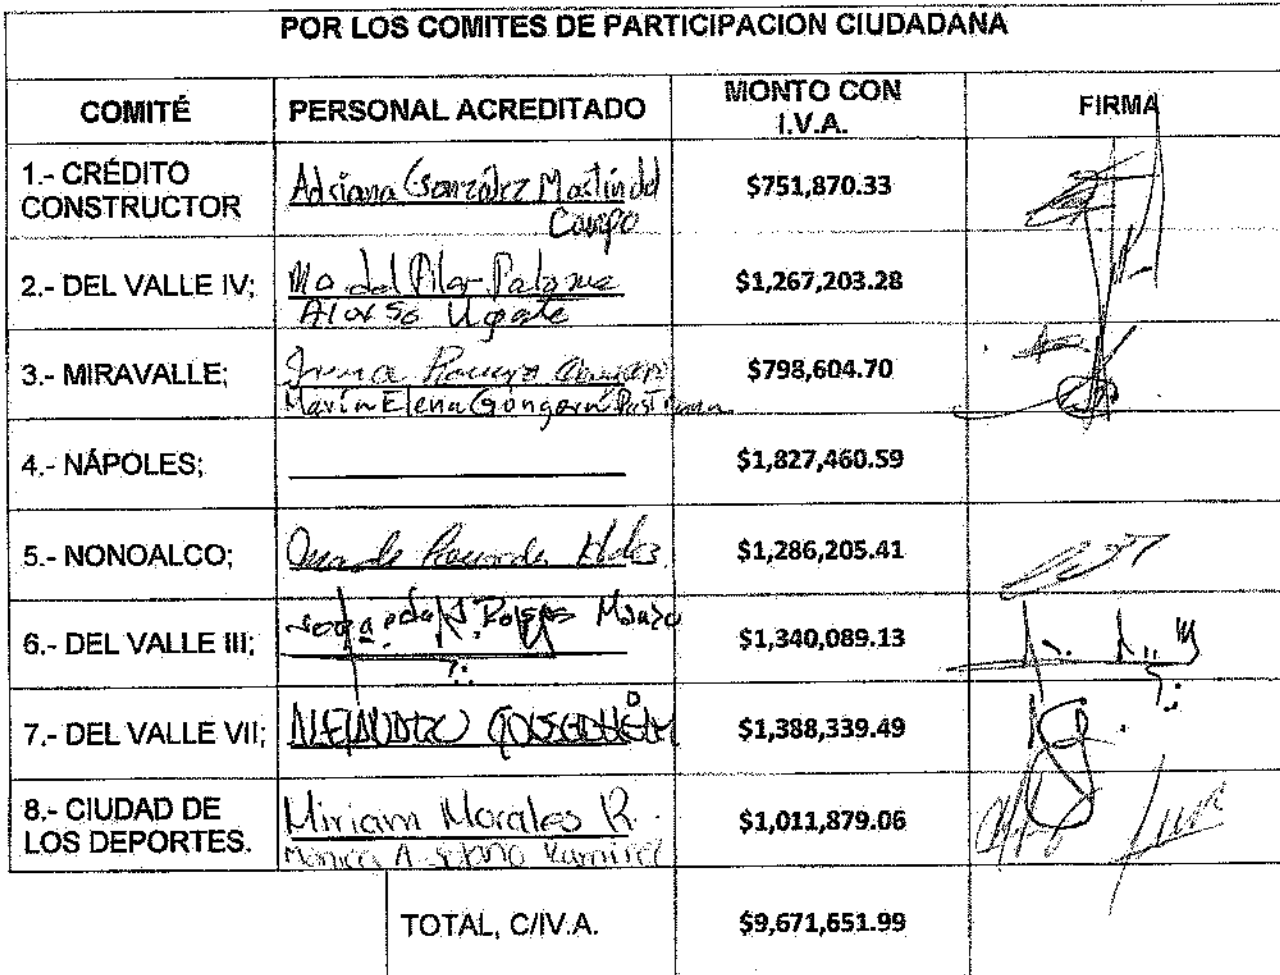 POR LOS COMITES DE PARTICIPACION CIUDADANA
COMITÉ PERSONAL ACREDITADO MONTO CON I.V.A. FIRMA
1.- CRÉDITO CONSTRUCTOR
Adriana González Martín del
Campo
$751,870.33
2.- DEL VALLE IV;
Ma del Pilar Paloma
Ugarte
$1,267,203.28
3.- MIRAVALLE;
Irma
María Elena Góngora
$798,604.70
4.- NÁPOLES;
$1,827,460.59
5.- NONOALCO;
$1,286,205.41
6.- DEL VALLE III;
$1,340,089.13
7.- DEL VALLE VII;
$1,388,339.49
8.- CIUDAD DE
LOS DEPORTES.
Miriam Morales R.
Monica A Ramirez
$1,011,879.06
TOTAL, C/IV.A. $9,671,651.99